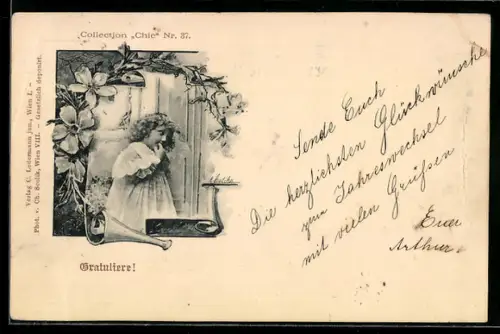 Collection „Chic“ Nr. 37.
Verlag C. Ledermann jun., Wien I. –
Phot. v. Ch. Scolik, Wien VIII. – Gesetzlich deponirt.
Gratuliere!
Sende Euch
Die herzlichsten Glückwünsche
zum Jahreswechsel
mit vielen Grüßen
Euer
Arthur.